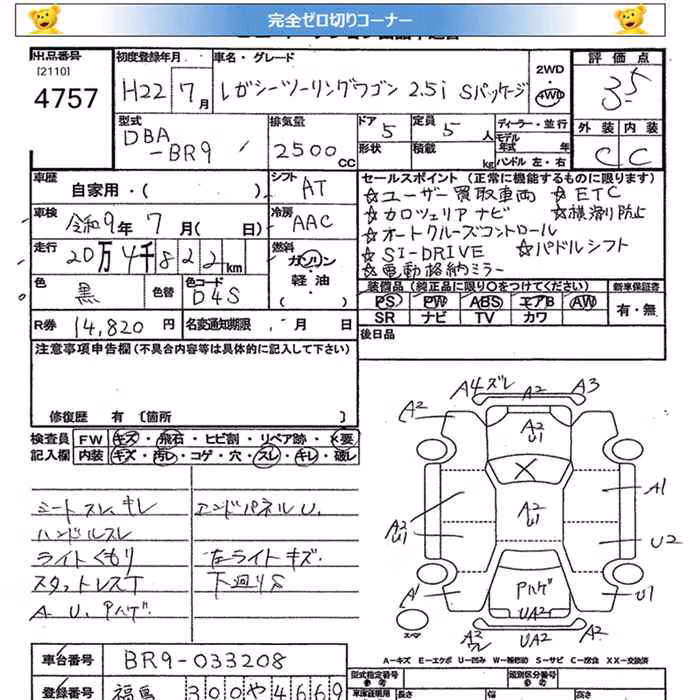 完全ゼロ切りコーナー
出品番号
[2110]
4757
初度登録年月
H22 7月
車名・グレード
レガシーツーリングワゴン 2.5i Sパッケージ
2WD
4WD
評価点
3.5
外装 内装
C C
型式
DBA
-BR9
排気量
2500CC
ドア 5
形状
定員 5人
積載 kg
ディーラー・並行
モデル年式 年
ハンドル 左・右
車歴
自家用・( )
シフト AT
車検
令和9年7月(日)
冷房 AAC
走行
20万4千822km
燃料
ガソリン
軽油
色 黒
色替
色コード D4S
R券 14,820円
名変通知期限 月 日
セールスポイント(正常に機能するものに限ります)
☆ユーザー買取車両 ☆ETC
☆カロツェリアナビ ☆横滑り防止
☆オートクルーズコントロール
☆SI-DRIVE ☆パドルシフト
☆電動格納ミラー
装備品(純正品に限り○をつけてください)
PS PW ABS エアB AW
SR ナビ TV カワ
新車保証書
有・無
後日品
注意事項申告欄(不具合内容等は具体的に記入して下さい)
修復歴 有 [箇所 ]
検査員記入欄
FW キズ・飛石・ヒビ割・リペア跡・X要
内装 キズ・汚レ・コゲ・穴・スレ・キレ・破レ
シートスレ、キレ
ハンドルスレ
ライトくもり
スタットレスT
A. U. Pハゲ
エンドパネルU.
左ライトキズ.
下廻りS
A4ズレ A2 A3
A2
A2
U1
A2
A2
U1
A1
A2
U1
U2
Pハゲ
A1
UA2
U1
スペア
A2
ワレ
UA2
A2
A-キズ E-エクボ U-凹み W-補修跡 S-サビ C-腐食 XX-交換済
車台番号
BR9-033208
登録番号
福島 300 や 4669
型式指定番号
参考
類別区分番号
参考
車庫証明用
長さ
幅
高さ